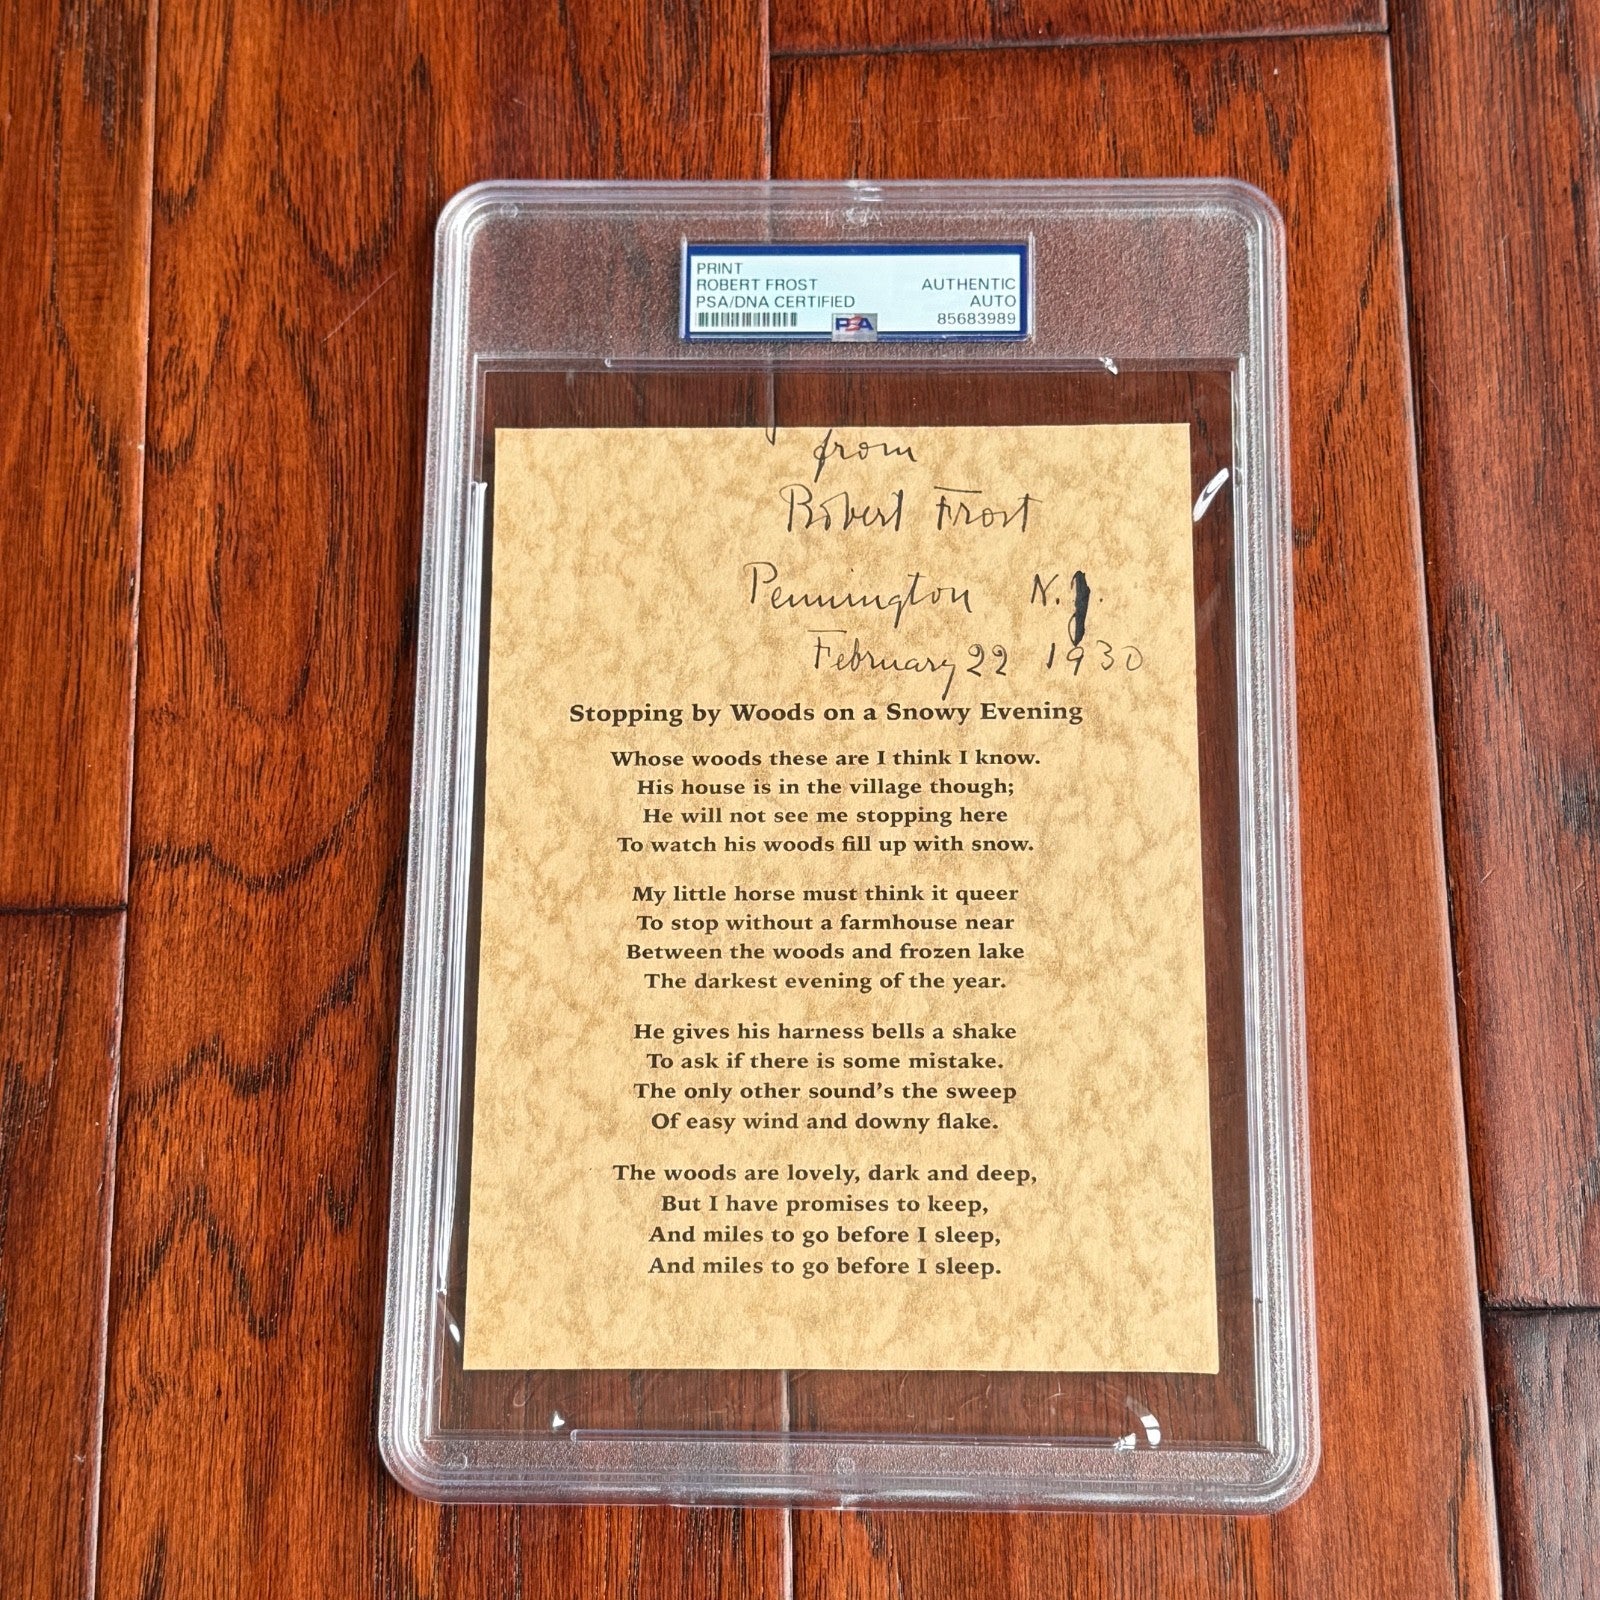 PRINT
ROBERT FROST
PSA/DNA CERTIFIED
AUTHENTIC
AUTO
85683989
PSA
from
Robert Frost
Pennington N.J.
February 22 1930
Stopping by Woods on a Snowy Evening
Whose woods these are I think I know.
His house is in the village though;
He will not see me stopping here
To watch his woods fill up with snow.
My little horse must think it queer
To stop without a farmhouse near
Between the woods and frozen lake
The darkest evening of the year.
He gives his harness bells a shake
To ask if there is some mistake.
The only other sound’s the sweep
Of easy wind and downy flake.
The woods are lovely, dark and deep,
But I have promises to keep,
And miles to go before I sleep,
And miles to go before I sleep.